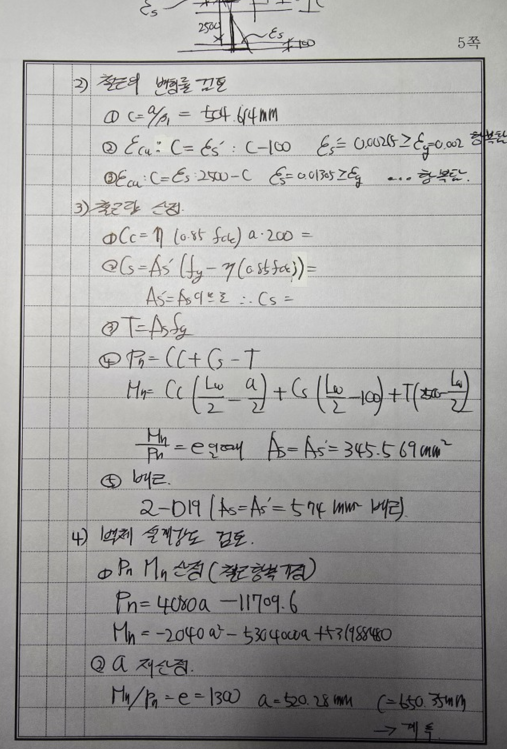 εs
2500
εs
100
5쪽
2) 철근의 변형률 검토
① c=a/β1 = 504.614mm
② εcu : c = εs' : c-100 εs'= 0.00265 ≥ εy=0.002 항복함
③ εcu : c = εs : 2500-c εs=0.01305≥εy … 항복함.
3) 철근량 산정.
① Cc= η (0.85 fck) a·200 =
② Cs=As' (fy - η(0.85fck))=
As'=As이므로 ∴ Cs =
③ T=Asfy
④ Pn= Cc + Cs - T
Mn= Cc (Lw/2 - a/2) + Cs (Lw/2 -100) + T(2500 - Lw/2)
Mn/Pn = e 일때 As=As'=345.569mm²
⑤ 배근.
2-D19 (As=As'=574 mm² 배근)
4) 벽체 설계강도 검토.
① Pn Mn 산정 (철근항복 가정)
Pn=4080a -11709.6
Mn=-2040a² - 5304000a +
② a 재산정.
Mn/Pn = e = 1300 a=520.28mm c=650.35mm
→ 계속